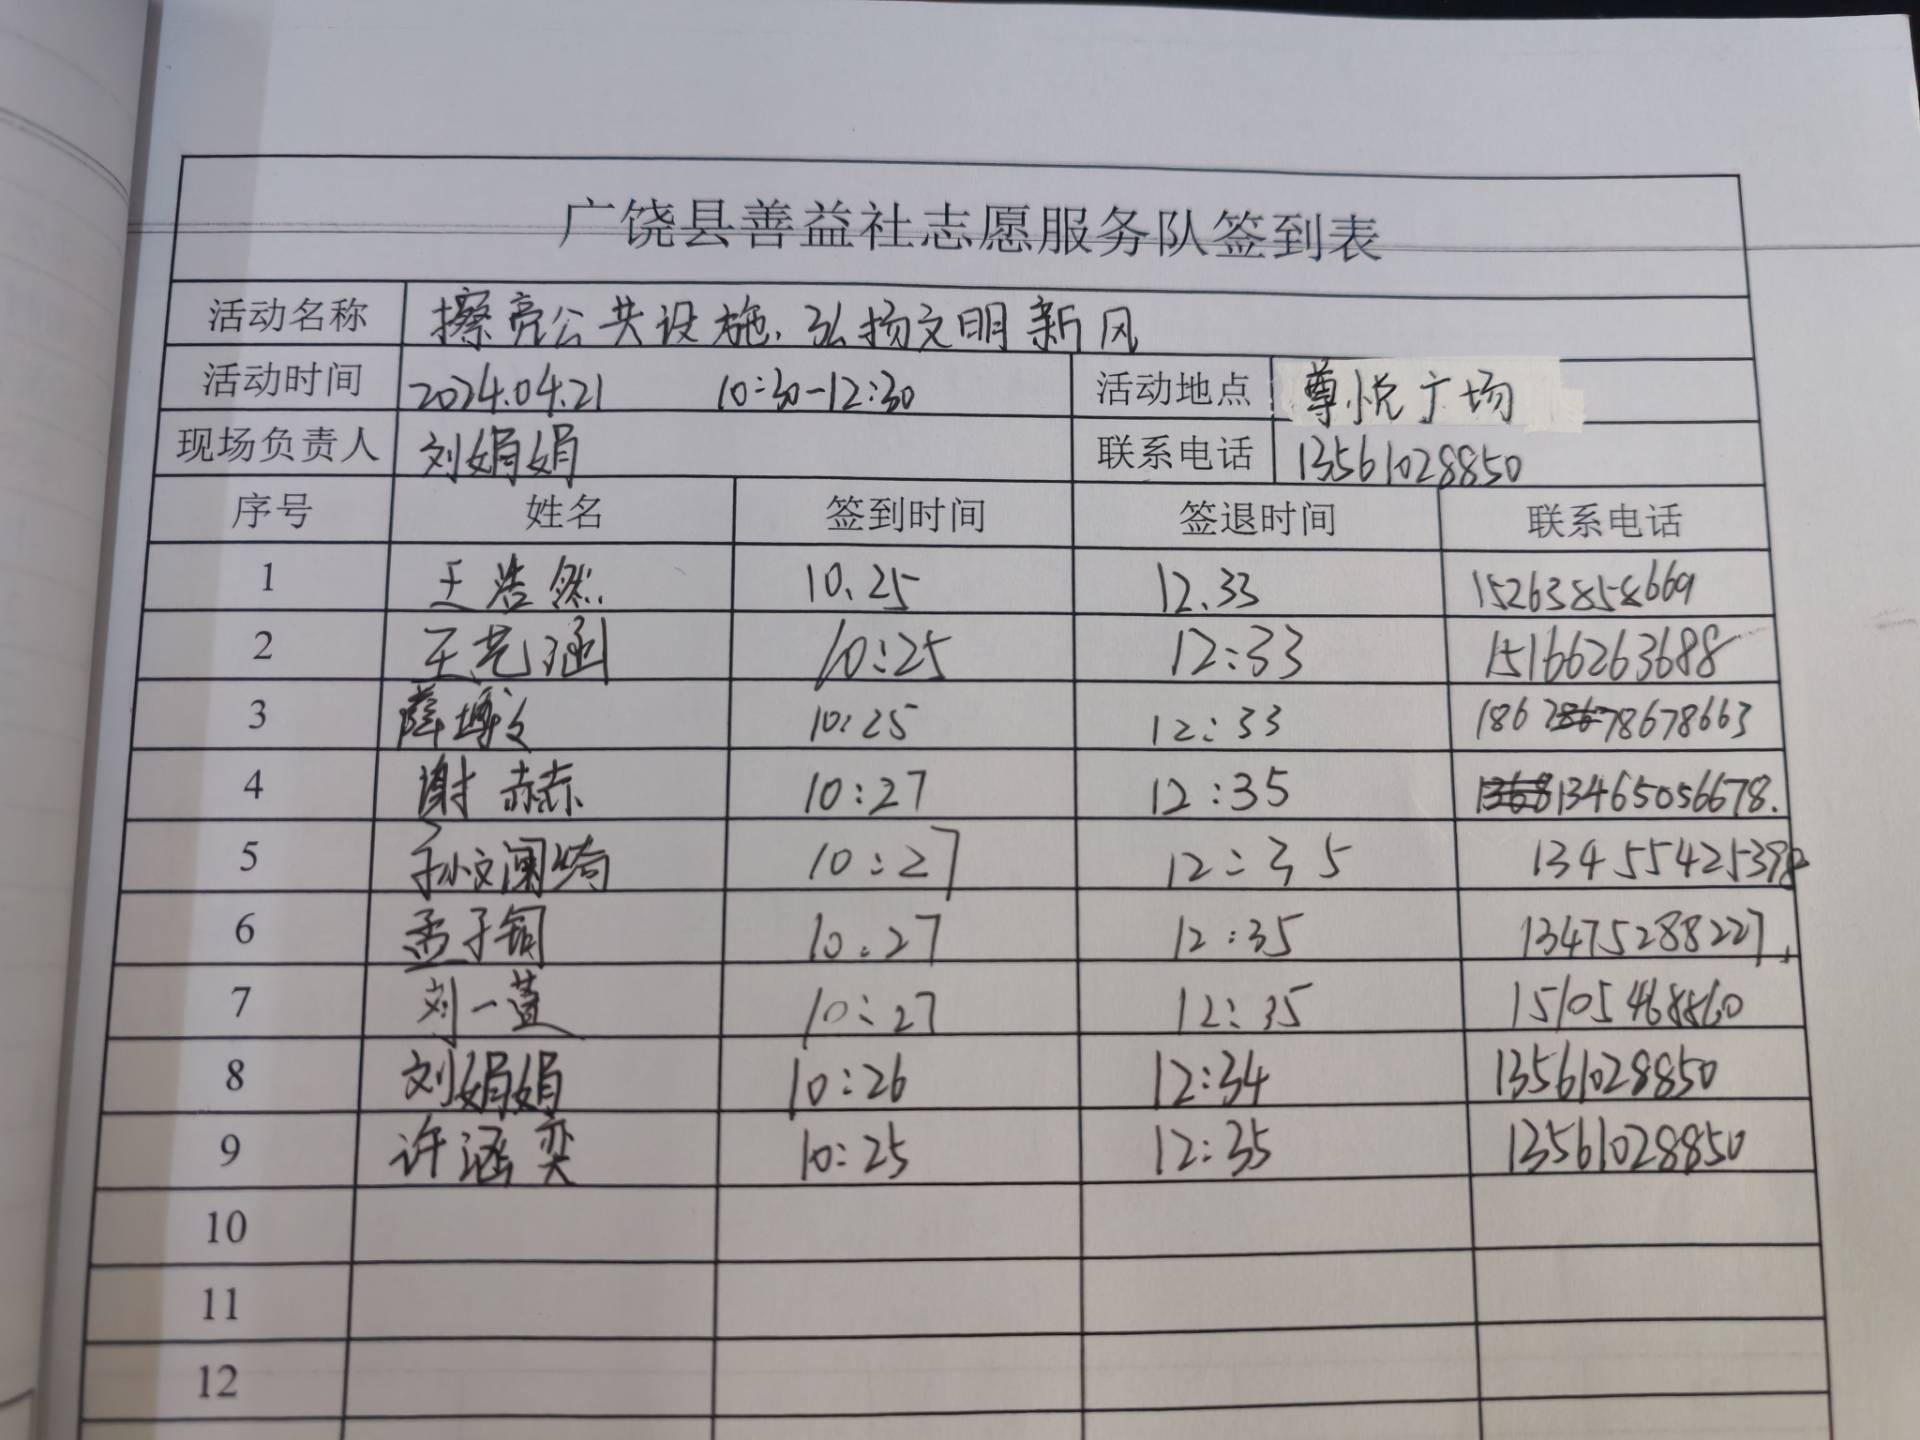 广饶县善益社志愿服务队签到表
活动名称 擦亮公共设施,弘扬文明新风
活动时间 2024.04.21 10:30-12:30 活动地点 尊悦广场
现场负责人 刘娟娟 联系电话 13561028850
序号 姓名 签到时间 签退时间 联系电话
1 王浩然 10.25 12.33 15263858669
2 王艺涵 10:25 12:33 15166263688
3 薛博文 10:25 12:33 18678678663
4 谢赫 10:27 12:35 13465056678.
5 孙文阑 10:27 12:35
6 孟子 10:27 12:35 13475288227
7 刘一萱 10:27 12:35 15105468860
8 刘娟娟 10:26 12:34 13561028850
9 许涵奕 10:25 12:35 13561028850
10
11
12